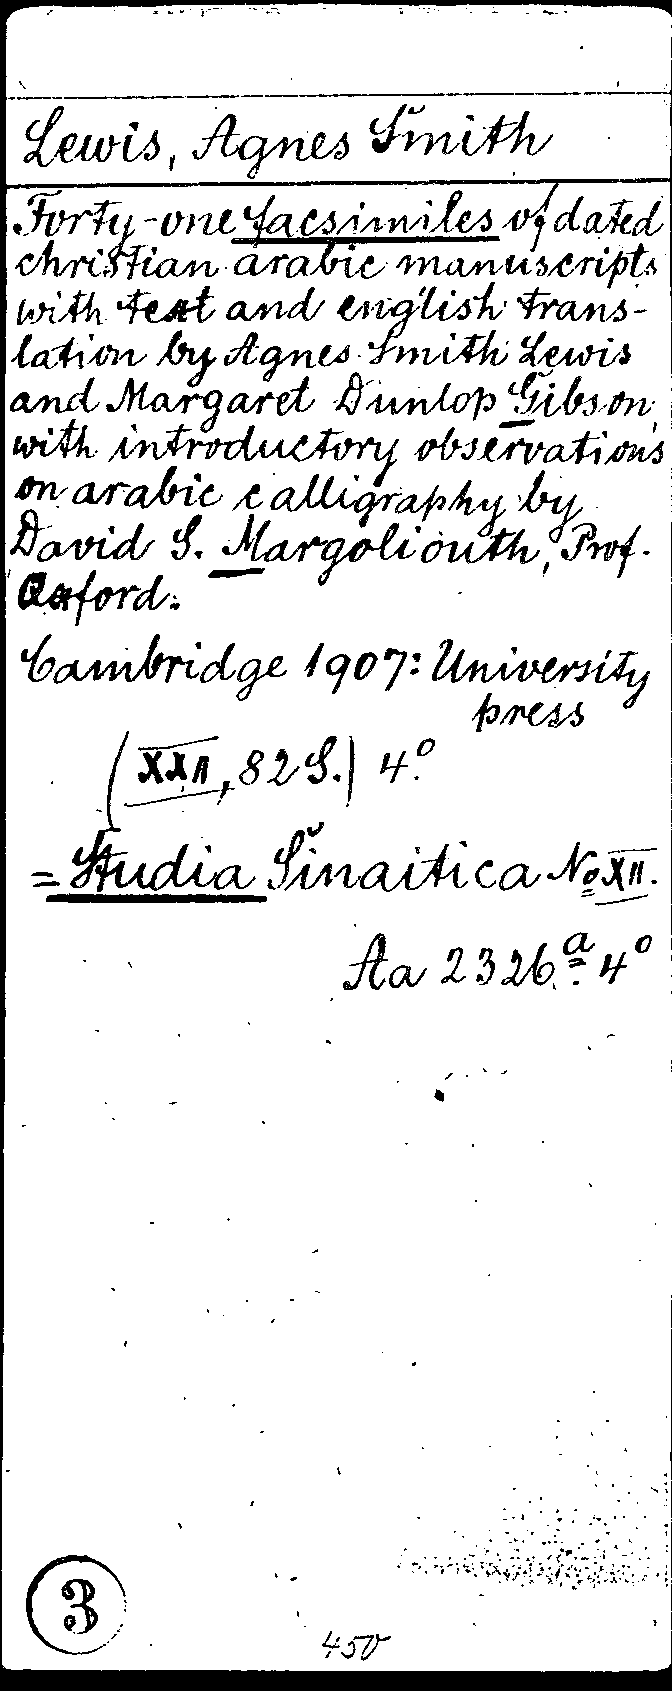 Lewis, Agnes Smith
Forty-one facsimiles of dated
christian arabic manuscripts
with text and english trans-
lation by Agnes Smith Lewis
and Margaret Dunlop Gibson,
with introductory observations
on arabic calligraphy by
David S. Margoliouth, Prof.
Oxford.
Cambridge 1907: University
press
(XXII, 82 S.) 4°
= Studia Sinaitica No XII.
Aa 2326 a 4°
3
450